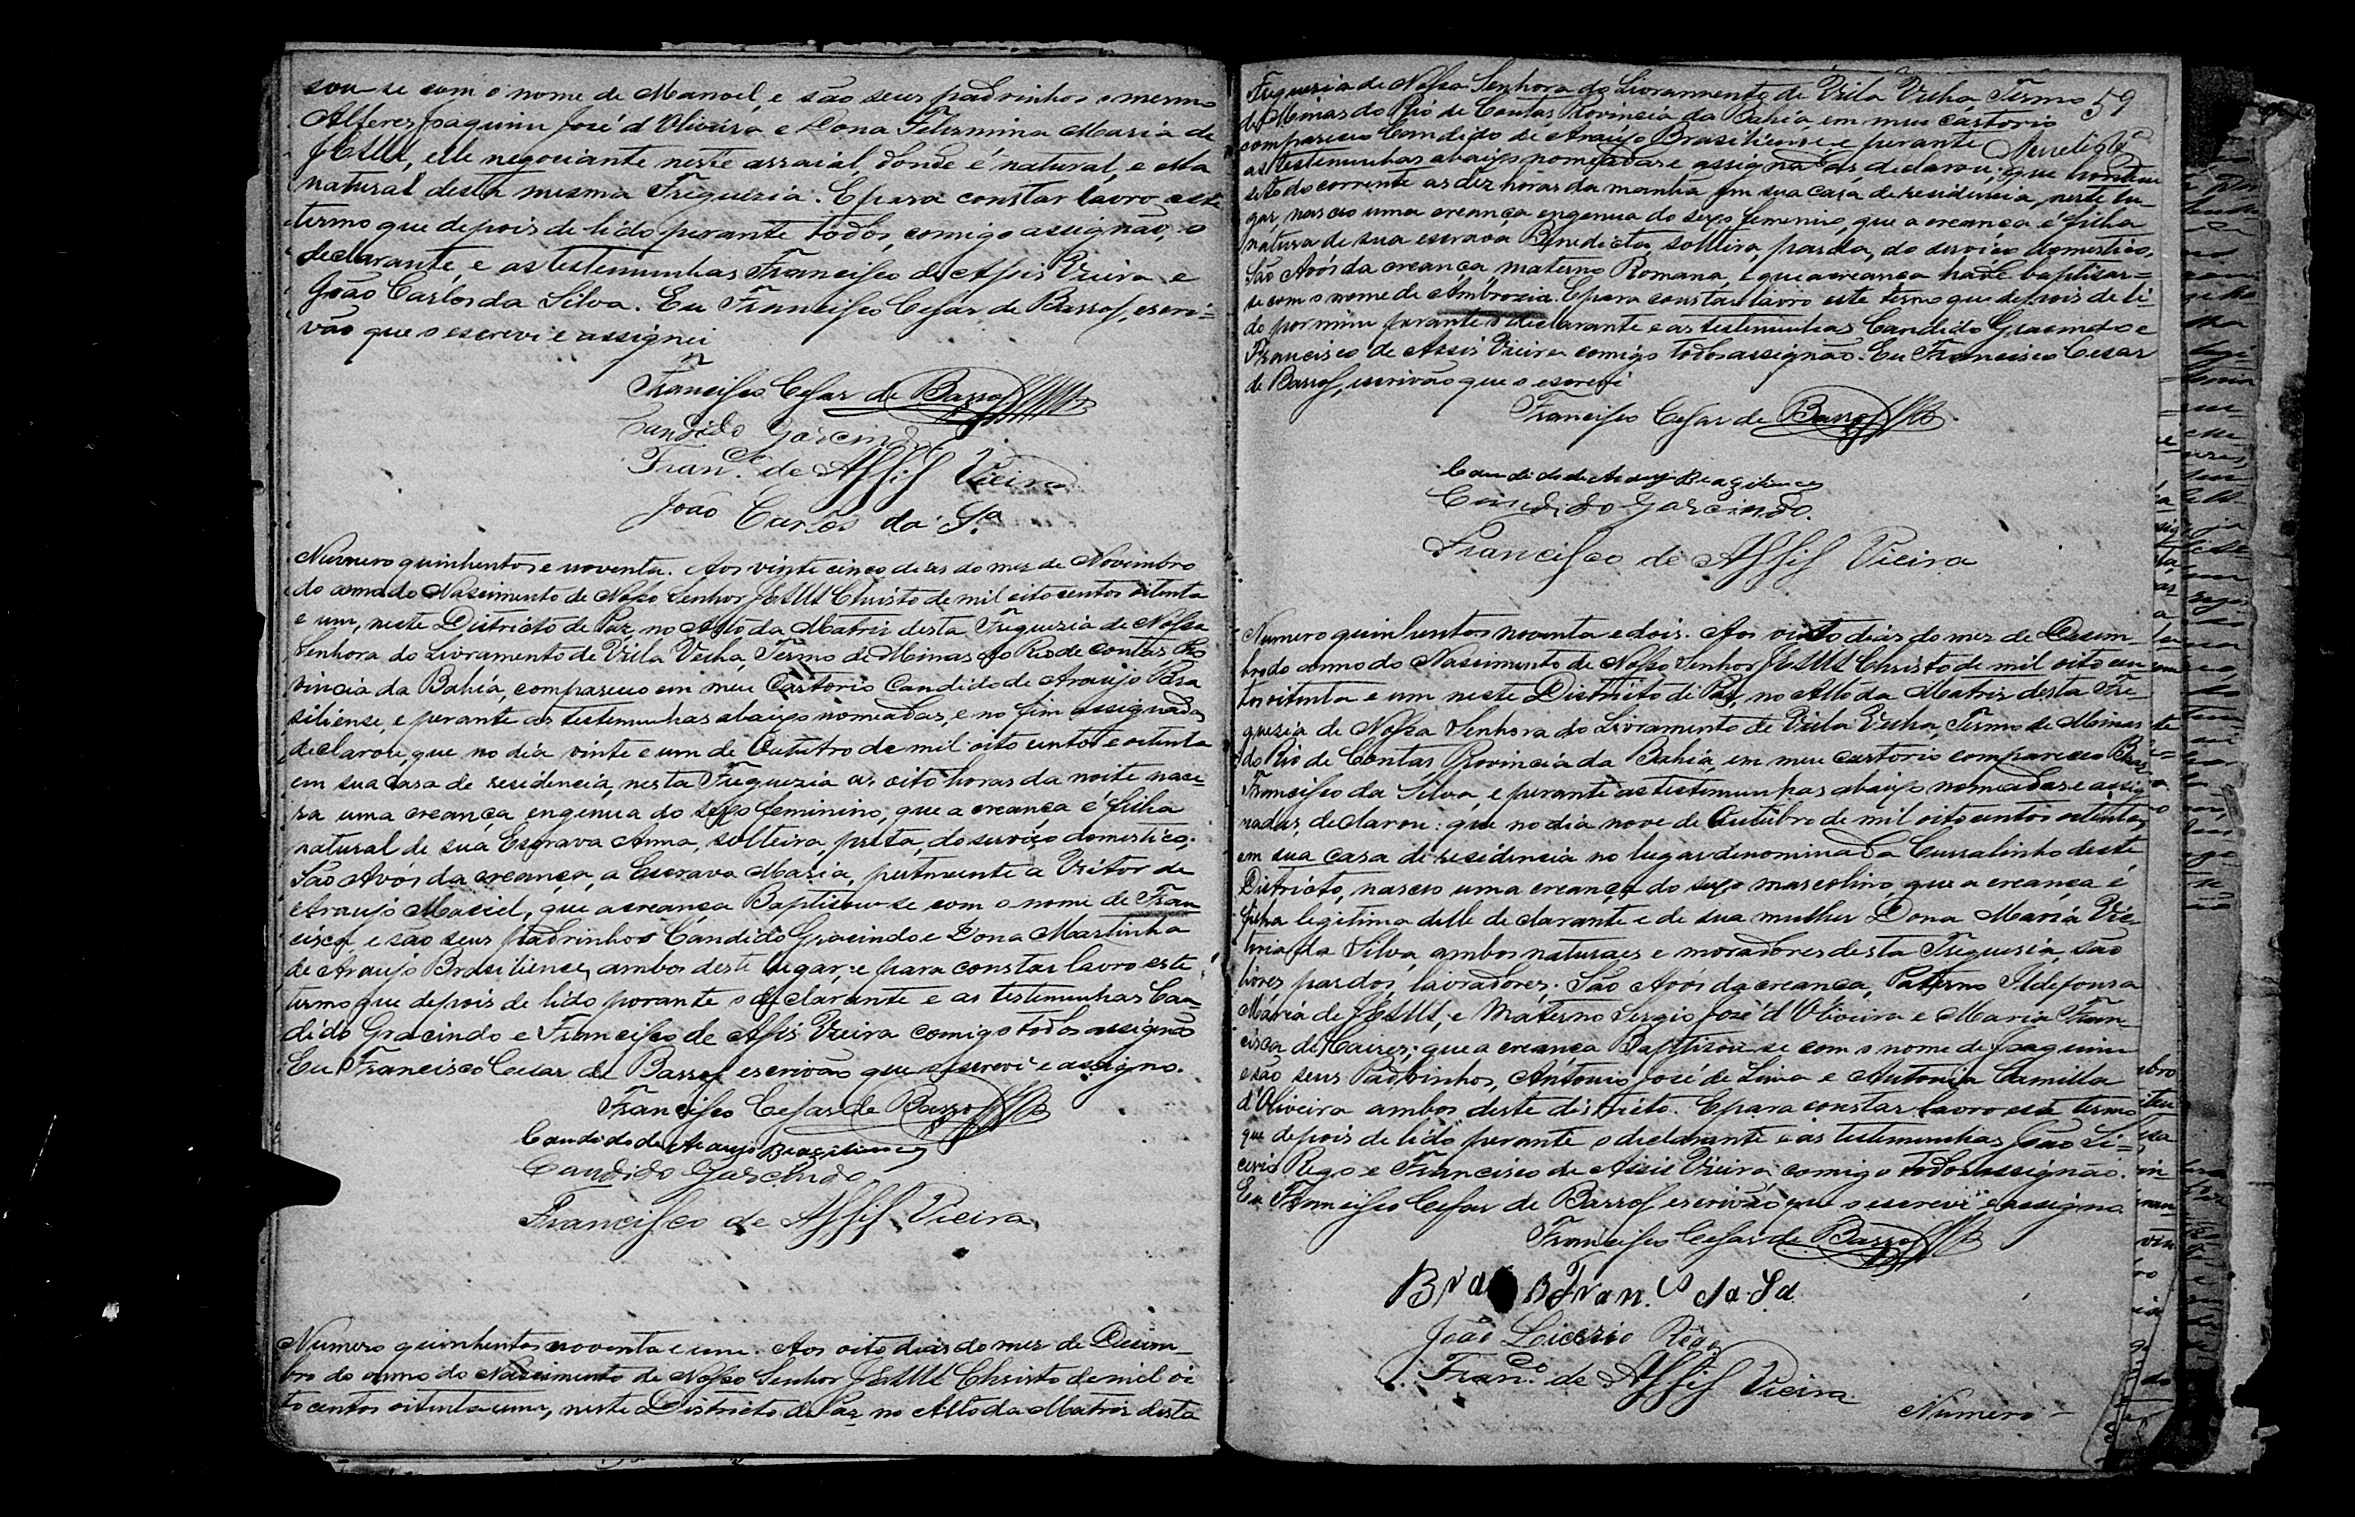 sou-se com o nome de Manoel, e são seus padrinhos o mesmo
Alferes Joaquim José d'Oliveira e Dona Felismina Maria de
JESUS, elle negociante neste arraial, donde é natural, e ella
natural desta mesma Freguezia. E para constar lavro este
termo que depois de lido perante todos, comigo assignão, o
declarante, e as testemunhas Francisco de Assis Vieira e
João Carlos da Silva. Eu Francisco Cesar de Barros, escri-
vão que o escrevi e assignei
Francisco Cesar de Barros
Candido Garcindo
Fran.co de Assis Vieira
João Carlos da S.a
Numero quinhentos e noventa. Aos vinte cinco dias do mez de Novembro
do anno do Nascimento de Nosso Senhor JESUS Christo de mil oito centos oitenta
e um, neste Districto de Paz, no Alto da Matriz desta Freguezia de Nossa
Senhora do Livramento de Villa Velha, Termo de Minas do Rio de Contas Pro
vincia da Bahia, compareceu em meu Cartorio Candido de Araujo Bra
siliense, e perante as testemunhas abaixo nomeadas, e no fim assignadas
declarou, que no dia vinte e um de Outubro de mil oito centos e oitenta
em sua casa de residencia, nesta Freguezia as oito horas da noite nasce-
ra uma creança ingenua do sexo feminino, que a creança é filha
natural de sua Escrava Anna, solteira, preta, do serviço domestico.
São Avós da creança, a Escrava Maria, pertencente a Vitor de
Araujo Maciel, que a creança Baptisou-se com o nome de Fran
cisca, e são seus Padrinhos Candido Gracindo e Dona Martinha
de Araujo Brasiliense, ambos deste lugar, e para constar lavro este
termo que depois de lido perante o declarante e as testemunhas Can
dido Gracindo e Francisco de Assis Vieira comigo todos assignão
Eu Francisco Cesar de Barros escrivão que o escrevi e assigno.
Francisco Cesar de Barros
Candido de Araujo Brasiliense
Candido Garcindo
Francisco de Assis Vieira
Numero quinhentos noventa e um. Aos oito dias do mez de Dezem-
bro do anno do Nascimento de Nosso Senhor JESUS Christo de mil oi
to centos oitenta e um, neste Districto de Paz no Alto da Matriz desta
Freguezia de Nossa Senhora do Livramento de Villa Velha Termo
de Minas do Rio de Contas Provincia da Bahia, em meu Cartorio
59
compareceu Candido de Araujo Brasiliense e perante
as testemunhas abaixo nomeadas e assignadas declarou: que hontem
sete do corrente as dez horas da manhã em sua casa de residencia, neste lu-
gar, nasceo uma creança engenua do sexo feminino, que a creança é filha
natural de sua escrava Benedicta, solteira, parda, do serviço domestico.
São Avós da creança, materno Romana, e que a creança hade baptisar-
se com o nome de Ambrozia. E para constar lavro este termo que depois de li-
do por mim perante o declarante e as testemunhas Candido Gracindo e
Francisco de Assis Vieira comigo todos assignão. Eu Francisco Cesar
de Barros, escrivão que o escrevi
Francisco Cesar de Barros
Candido de Araujo Brasiliense
Candido Garcindo.
Francisco de Assis Vieira
Numero quinhentos noventa e dois. Aos oito dias do mez de Dezem
bro do anno do Nascimento de Nosso Senhor JESUS Christo de mil oito cen
tos oitenta e um neste Districto de Paz, no Alto da Matriz desta Fre
guezia de Nossa Senhora do Livramento de Villa Velha, Termo de Minas
do Rio de Contas Provincia da Bahia, em meu cartorio compareceu
Francisco da Silva, e perante as testemunhas abaixo nomeadas e assig
nadas, declarou: que no dia nove de Outubro de mil oitocentos oitenta,
em sua casa de residencia no lugar denominada Curralinho deste
Districto, nasceo uma creança do sexo masculino que a creança é
filha legitima delle declarante e de sua mulher Dona Maria Vic-
toria da Silva, ambos naturaes e moradores desta Freguezia, são
livres, pardos, lavradores. São Avós da creança, Paterno Ildefonsa
Maria de JESUS, e Materno Sergio José d'Oliveira e Maria Fran-
cisca de; que a creança Baptisou-se com o nome de Joaquim
e são seus Padrinhos, Antonio José de Lima e Antonia Camilla
d'Oliveira ambos deste districto. E para constar lavro este termo
que depois de lido perante o declarante e as testemunhas João Li-
cerio Rego e Francisco de Assis Vieira, comigo todos assignão.
Eu Francisco Cesar de Barros escrivão que o escrevi e assigno
Francisco Cesar de Barros
Fran.co da Sa
João Licerio Rego
Fran.co de Assis Vieira
Numero